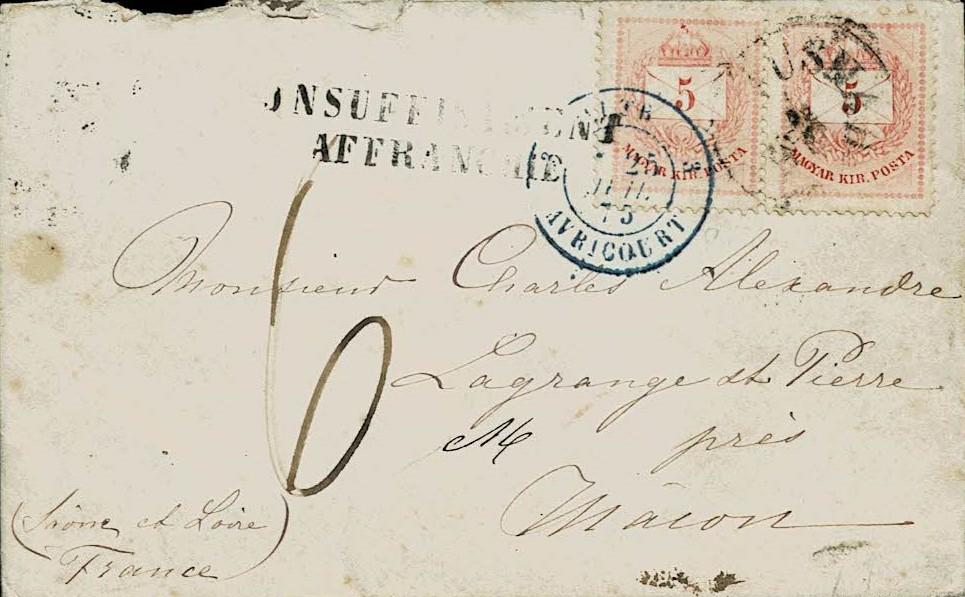 5 5
MAGYAR KIR. POSTA MAGYAR KIR. POSTA
INSUFFISAMMENT
AFFRANCHIE
25
JUIL.
75
AVRICOURT
6
Monsieur Charles Alexandre
Lagrange st Pierre
M près
Mâcon
(Saône et Loire)
France